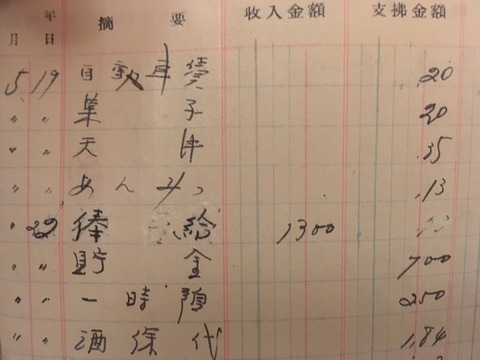 年
月 日 摘 要 收入金額 支拂金額
5 19 自動車賃 .20
〃 〃 菓子 20
〃 〃 天丼 .35
〃 〃 あんみつ .13
〃 22 俸給 1300
〃 〃 貯金 700
〃 〃 一時預 250
〃 〃 酒保代 1,84